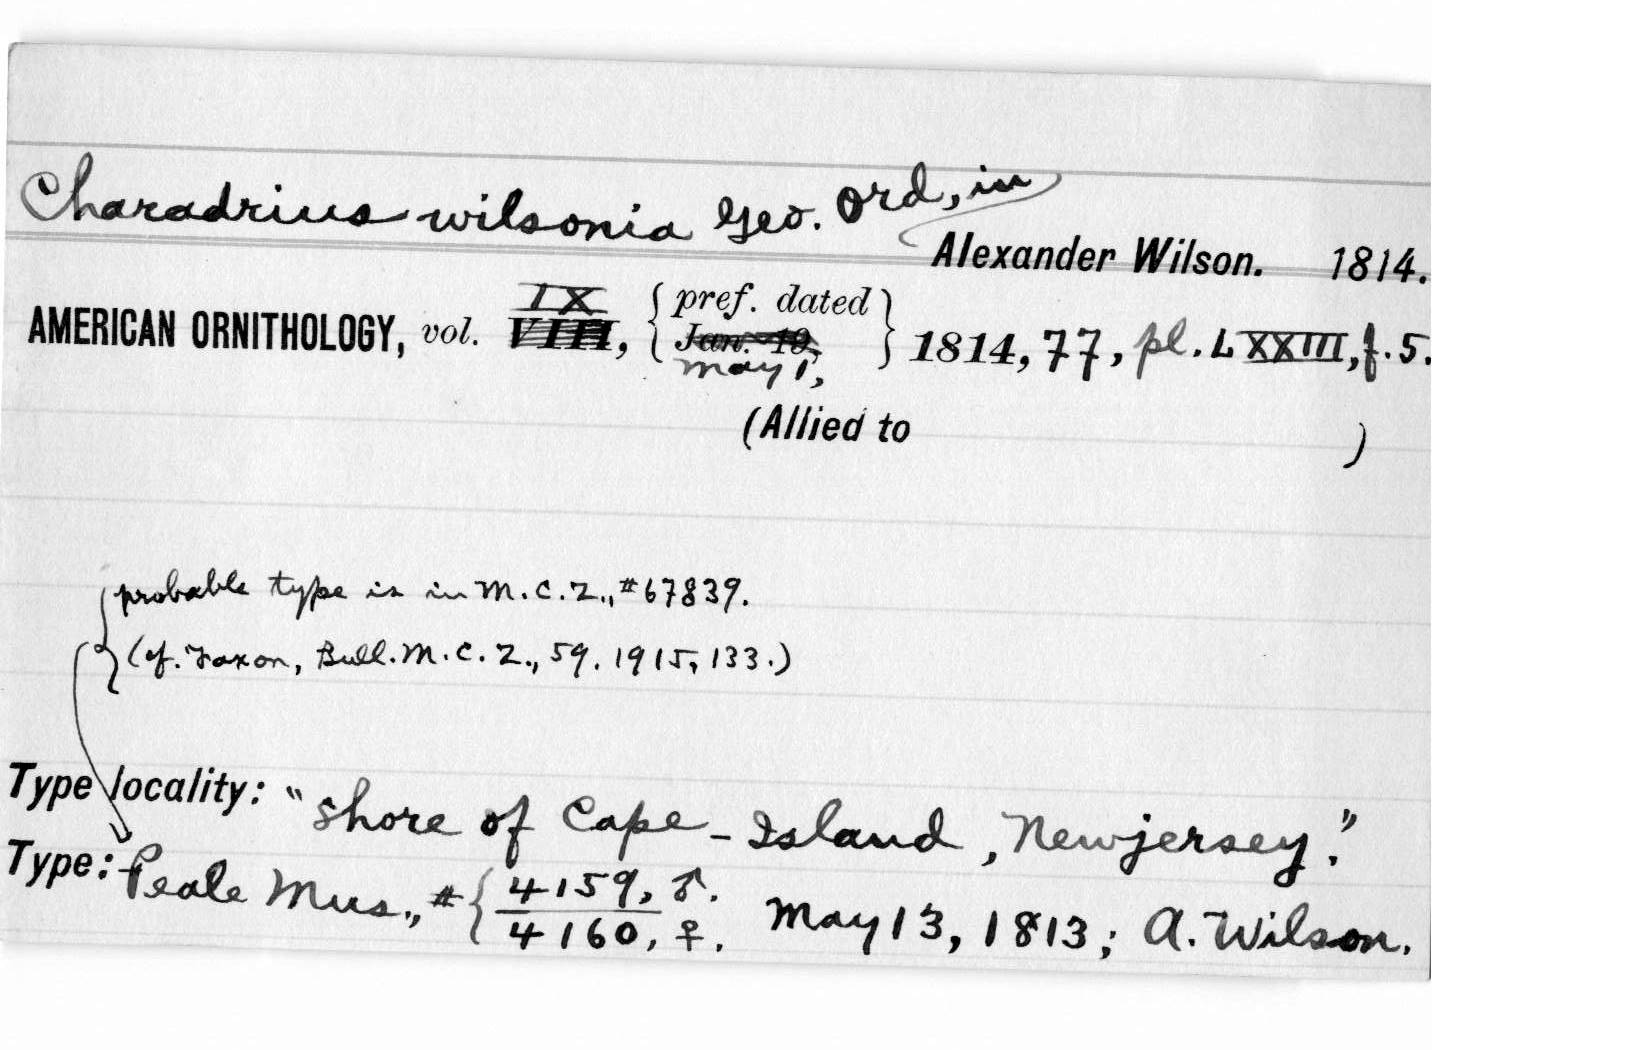 Charadrius wilsonia Geo. Ord, in
Alexander Wilson. 1814.
IX
AMERICAN ORNITHOLOGY, vol. VIII, { pref. dated Jan. 19, May 1, } 1814, 77, pl. LXXIII, f. 5.
(Allied to )
probable type is in M.C.Z., #67839.
(cf. Faxon, Bull. M.C.Z., 59, 1915, 133.)
Type locality: "Shore of Cape-Island, New Jersey."
Type: Peale Mus., # { 4159, ♂. 4160, ♀. May 13, 1813; A. Wilson.